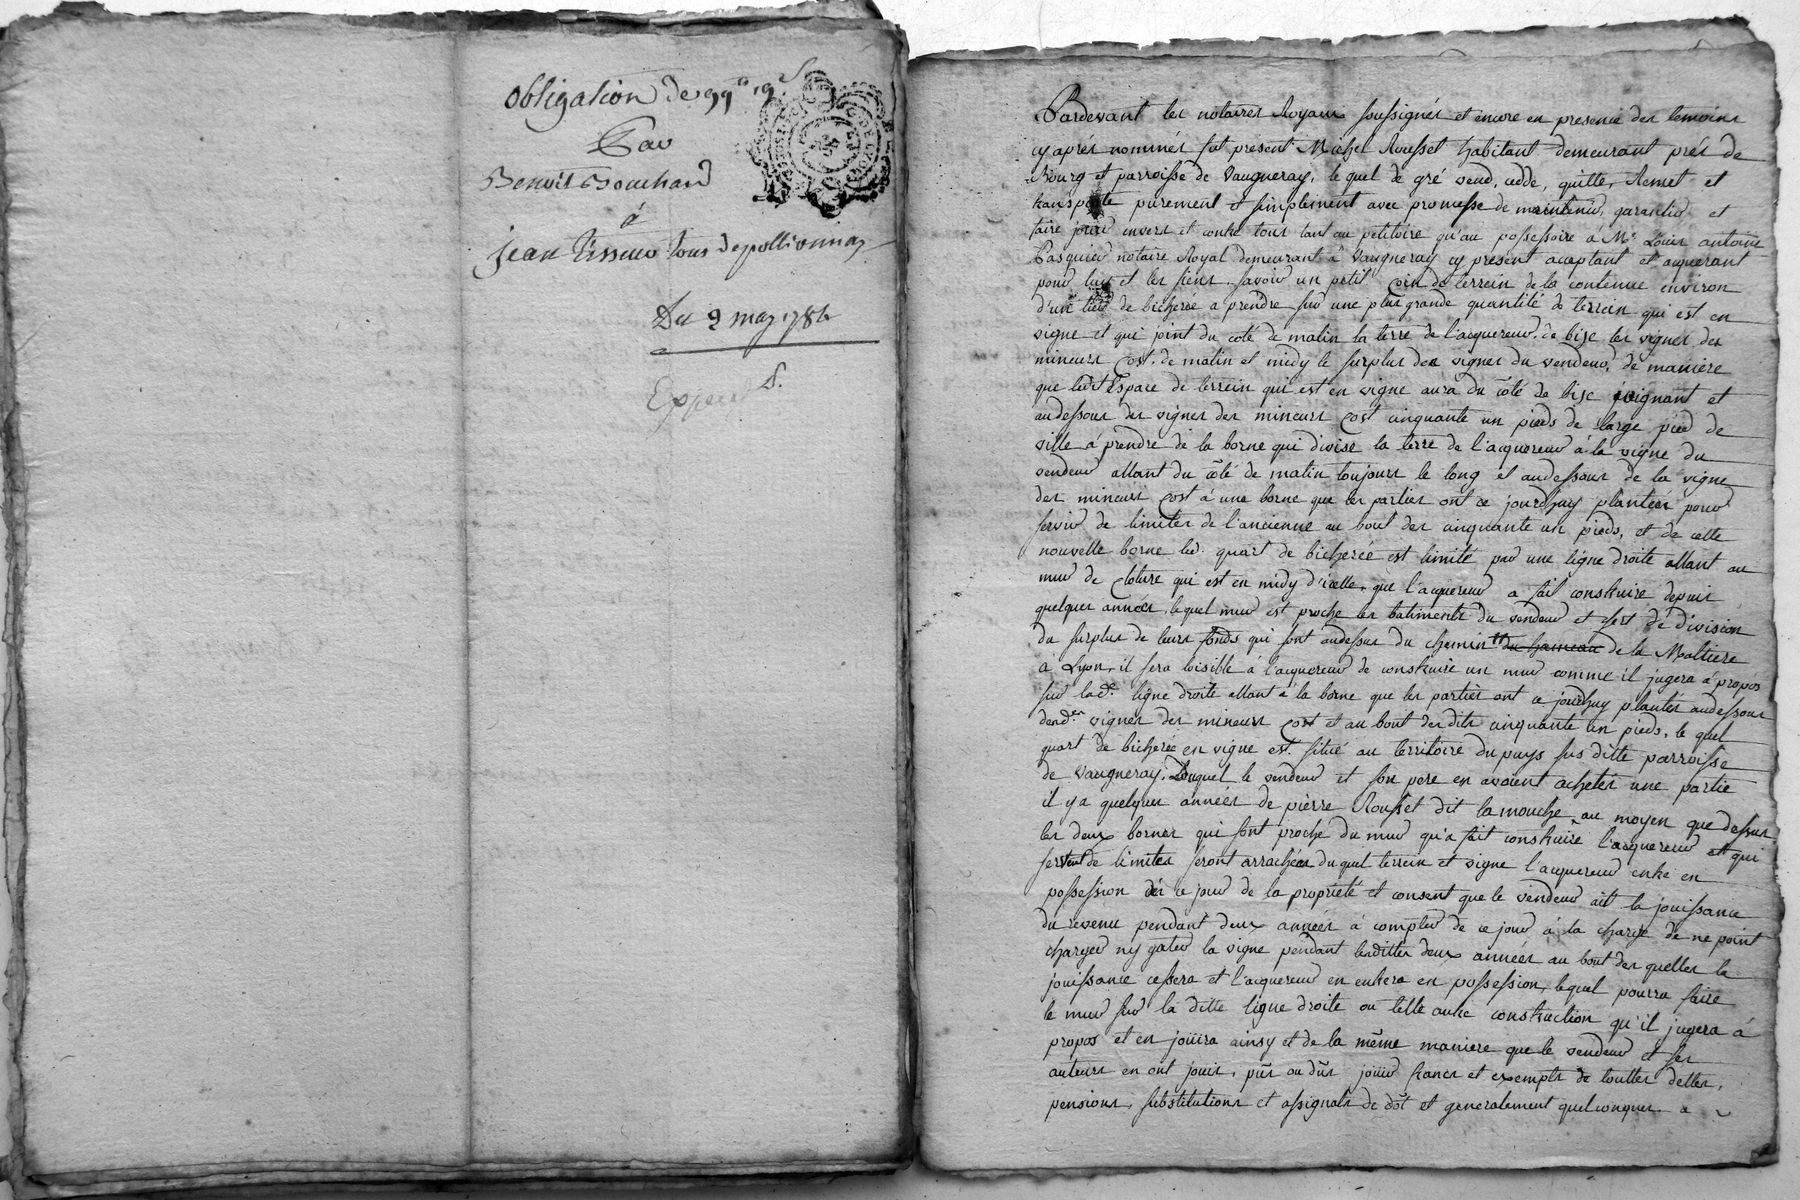 obligation de 99# 19s
Par
Benoit Bouchard
à
jean tisseur tous de pollionnay
Du 2 may 1784
Expedié
Pardevant les notaires Royaux soussignés et encore en presence des temoins
cy aprés nommés fut present Michel Rousset habitant demeurant prés de
Bourg et parroisse de Vaugneray, le quel de gré vend, cedde, quitte, Remet et
transporte purement et simplement avec promesse de maintenir, garantir et
faire jouir envers et contre tous tant au petitoire qu'au possessoire á Me Louis antoine
Pasquier notaire Royal demeurant á Vaugneray cy present acceptant et acquerant
pour luy et les siens, savoir un petit Coin de terrein de la contenue environ
d'un de bicherée a prendre sur une plus grande quantité de terrein qui est en
vigne et qui joint du coté de matin la terre de l'acquereur, de bise les vignes des
mineurs Cost, de matin et midy le surplus des vignes du vendeur, de maniere
que ledit Espace de terrein qui est en vigne aura du côté de bise joignant et
audessous des vignes des mineurs Cost cinquante un pieds de large pied de
ville á prendre de la borne qui divise la terre de l'acquereur á la vigne du
vendeur allant du côté de matin toujours le long et audessous de la vigne
des mineurs Cost á une borne que les parties ont ce jourdhuy plantées pour
servir de limites de l'ancienne au bout des cinquante un pieds, et de cette
nouvelle borne led. quart de bicherée est limité par une ligne droite allant au
mur de cloture qui est en midy d'icelle, que l'acquereur a fait construire depuis
quelques années, lequel mur est proche les batiments du vendeur et sert de division
du surplus de leurs fonds qui sont audessus du chemin du hameau de la Maltiere
a Lyon, il sera loisible á l'acquereur de construire un mur comme il jugera á propos
sur lade. ligne droite allant á la borne que les parties ont ce jourdhuy plantés audessous
desd.es vignes des mineurs Cost et au bout desdits cinquante un pieds, le quel
quart de bicherée en vigne est situé au territoire du puys sus ditte parroisse
de Vaugneray, Duquel le vendeur et son pere en avoient achetés une partie
il y a quelques années de pierre Rousset dit la mouche, au moyen que dessus
les deux bornes qui sont proche du mur qu'a fait construire l'acquereur et qui
servent de limites seront arrachées duquel terrein et vigne l'acquereur entre en
possession dés ce jour de la proprieté et consent que le vendeur ait la jouissance
du revenu pendant deux années á compter de ce jour á la charge de ne point
charger ny gater la vigne pendant lesdittes deux années au bout des quelles la
jouissance cessera et l'acquereur en entrera en possession, lequel pourra faire
le mur sur la ditte ligne droite ou telle autre construction qu'il jugera á
propos et en jouira ainsy et de la même maniere que le vendeur et ses
auteurs en ont jouis, pûs ou dûs jouir francs et exempts de touttes dettes,
pensions, substitutions et assignats de dôt et generalement quelconques. a